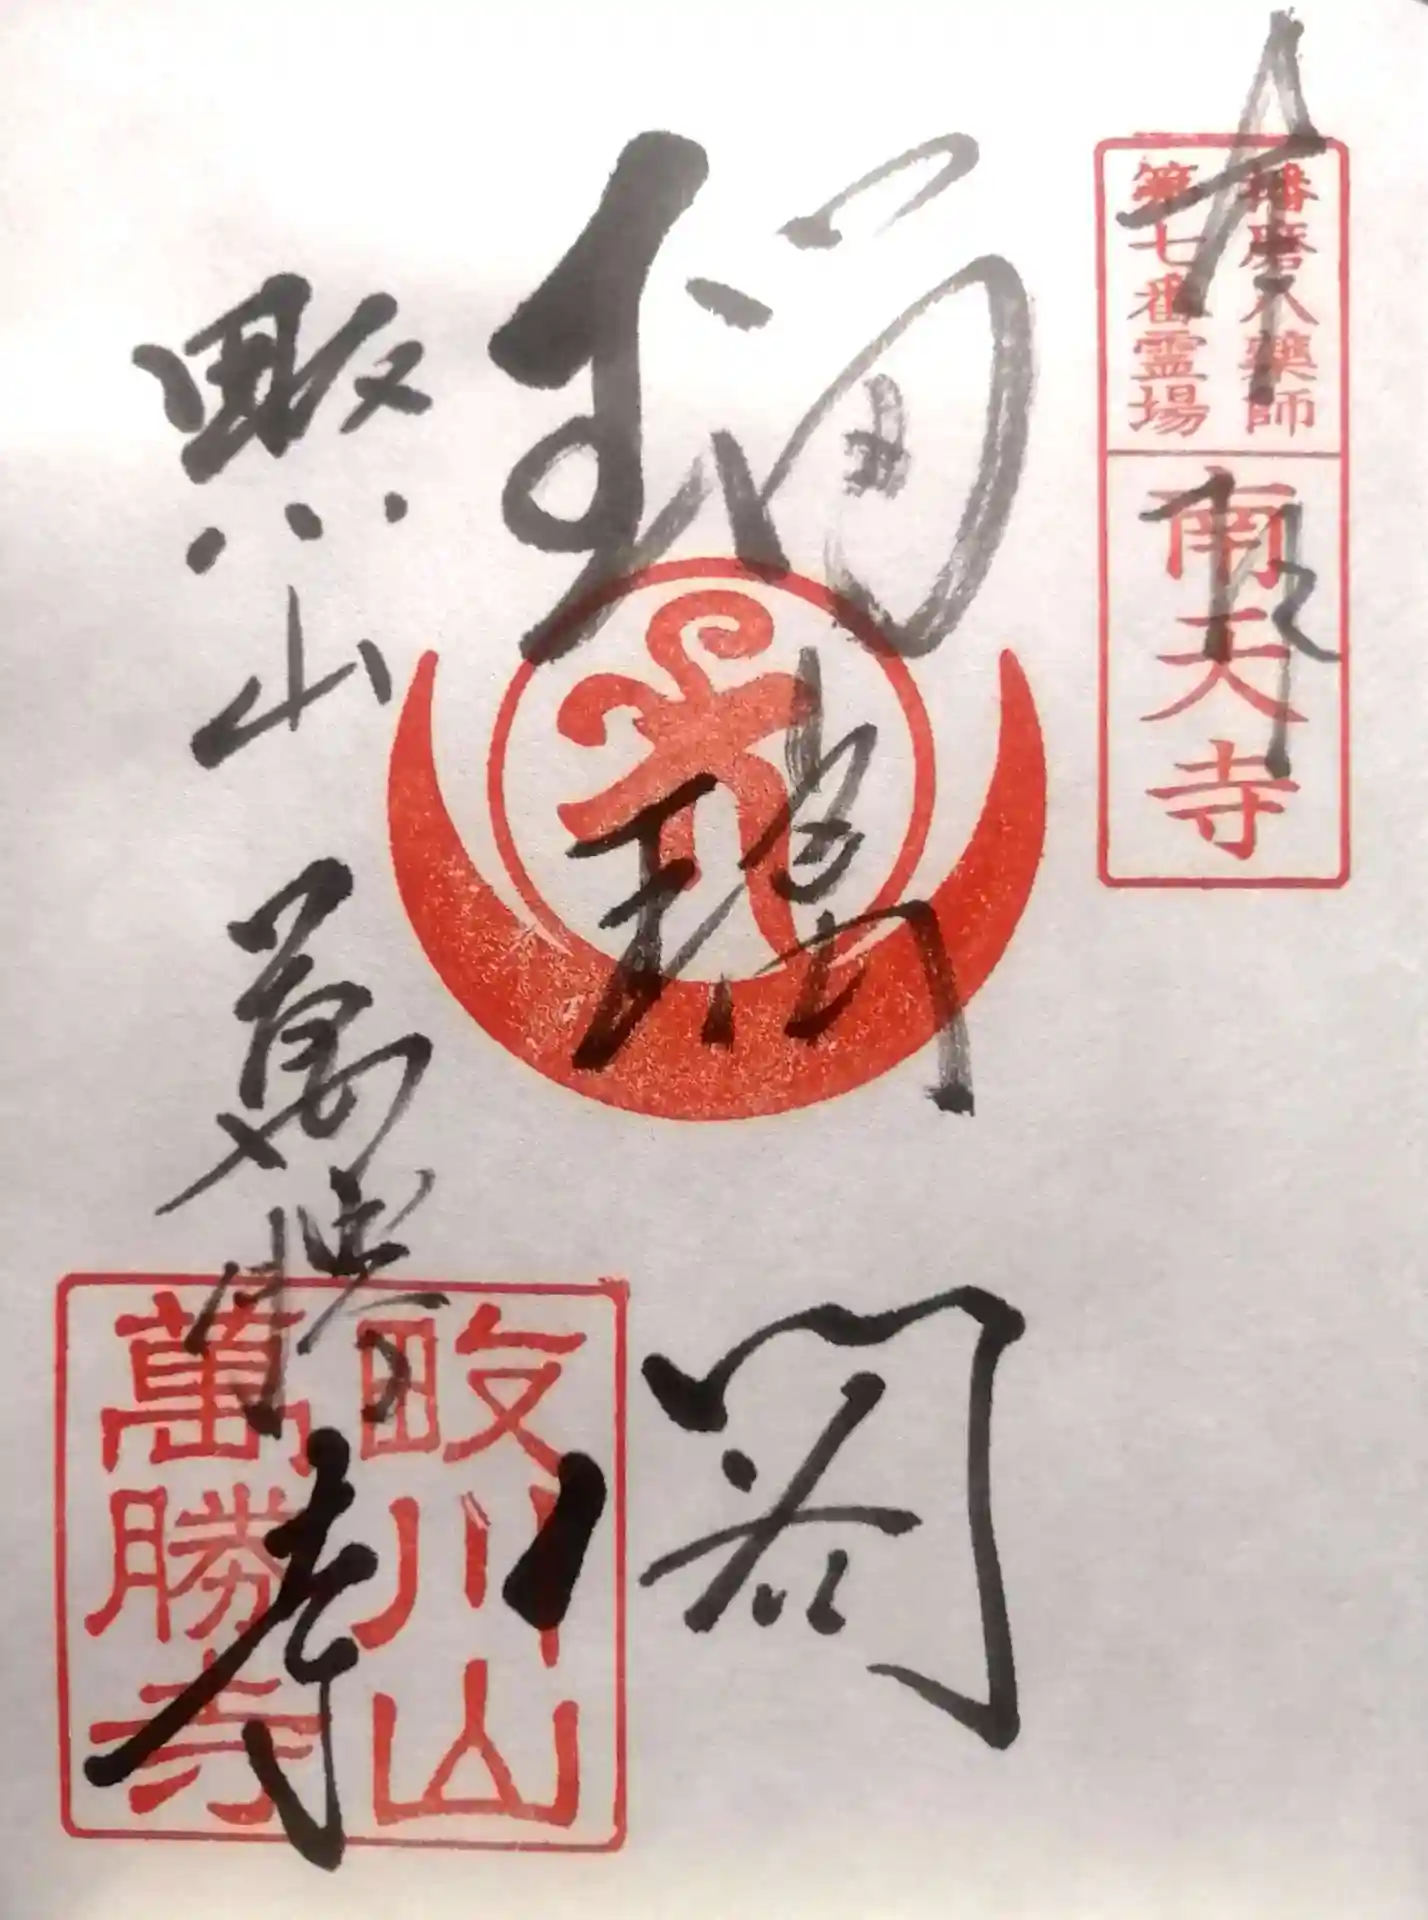 奉拝
播磨八薬師
第七番霊場
南天寺
瑠璃閣
畋川山 萬勝寺
畋川山
萬勝寺